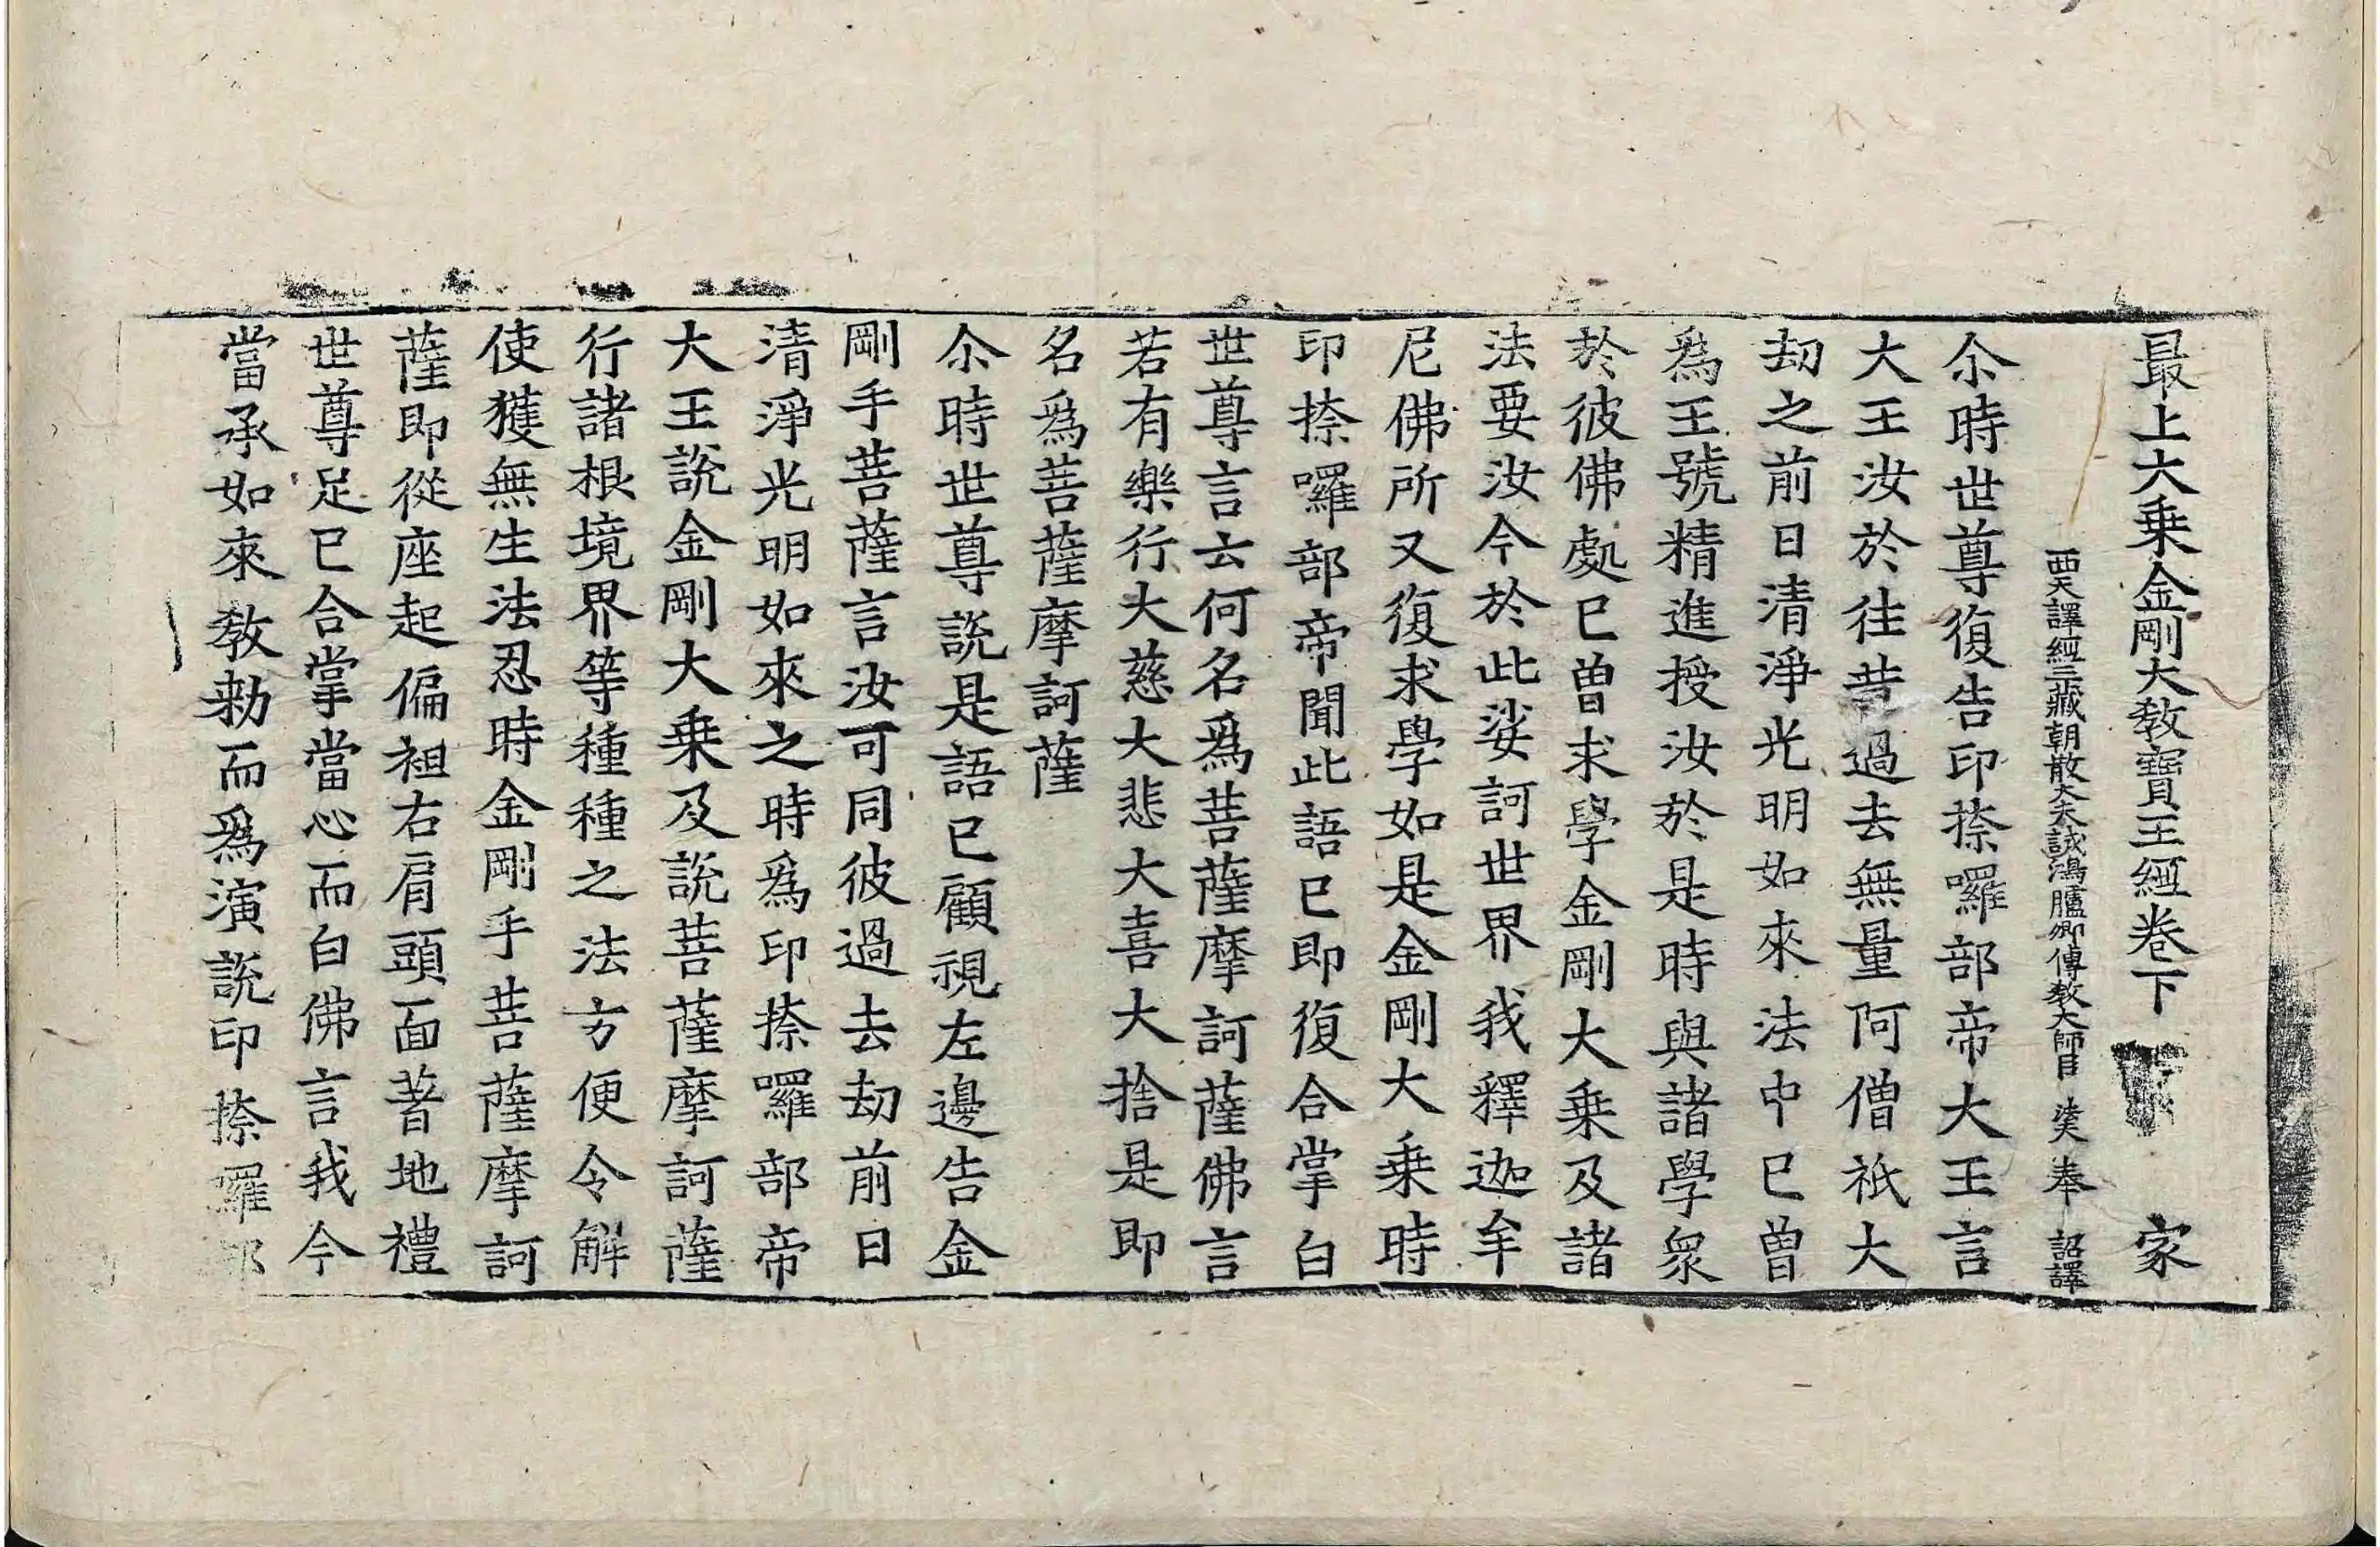 最上大乗金剛大教寶王經卷下 家
西天譯經三藏朝散大夫試鴻臚卿傳教大師臣 法天 奉 詔譯
尒時世尊復告印捺囉部帝大王言
大王汝於往昔過去無量阿僧祇大
劫之前日清淨光明如來法中已曾
爲王號精進授汝於是時與諸學衆
於彼佛處已曾求學金剛大乗及諸
法要汝今於此娑訶世界我釋迦牟
尼佛所又復求學如是金剛大乗時
印捺囉部帝聞此語已即復合掌白
世尊言云何名爲菩薩摩訶薩佛言
若有樂行大慈大悲大喜大捨是即
名爲菩薩摩訶薩
尒時世尊說是語已顧視左邊告金
剛手菩薩言汝可同彼過去劫前日
清淨光明如來之時爲印捺囉部帝
大王說金剛大乗及說菩薩摩訶薩
行諸根境界等種種之法方便令解
使獲無生法忍時金剛手菩薩摩訶
薩即從座起偏袒右肩頭面著地禮
世尊足已合掌當心而白佛言我今
當承如來教勑而爲演說印捺囉部